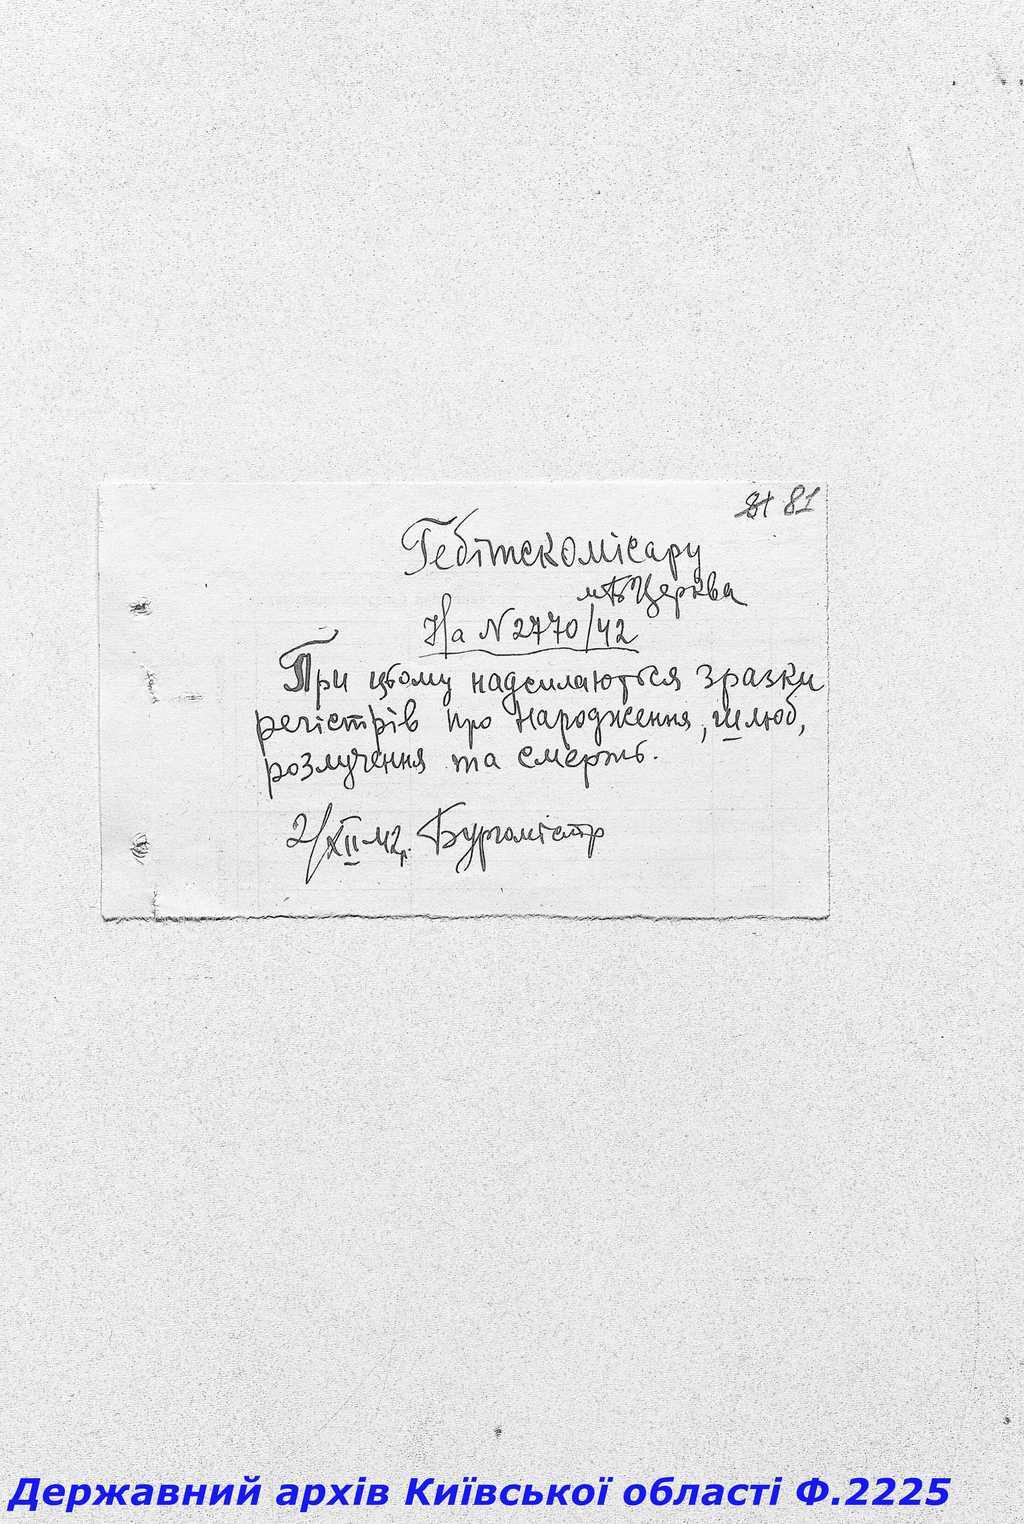 81 81
Гебітскомісару
м Б Церква
На N 2770/42
При цьому надсилаються зразки
регістрів про народження, шлюб,
розлучення та смерть.
2/XII 42 р. Бургомістр
Державний архів Київської області Ф.2225